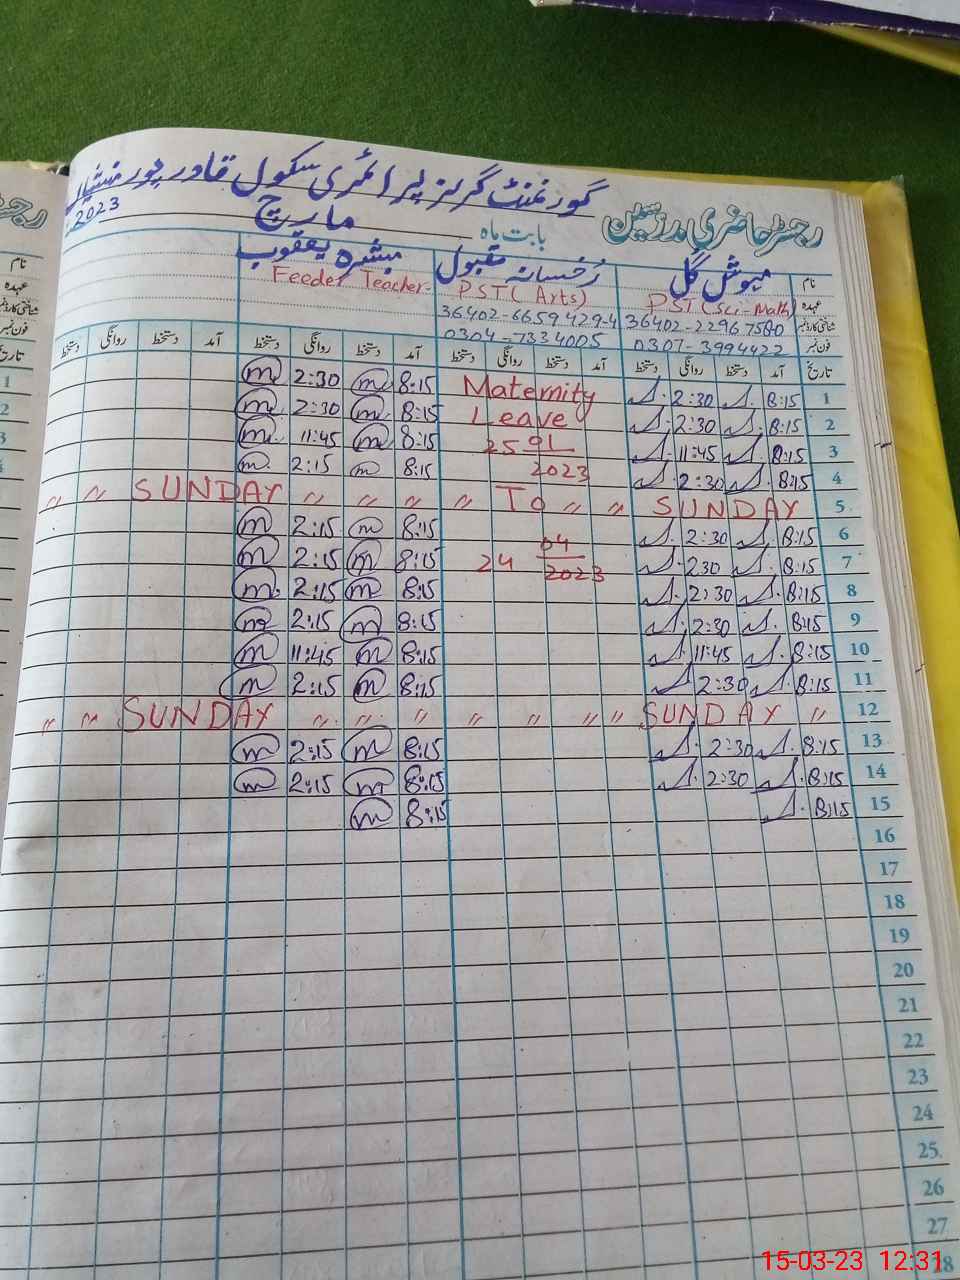 گورنمنٹ گرلز پرائمری سکول قادر پور منشیاں
رجسٹر حاضری مدرسین بابت ماہ مارچ 2023
نام میوش گل رخسانہ مقبول مبشرہ یعقوب
عہدہ PST (Sci-Math) PST (Arts) Feeder Teacher
شناختی کارڈ نمبر 36402-2296758-0 36402-6659429-4
فون نمبر 0307-3994422 0304-7334005
تاریخ آمد دستخط روانگی دستخط آمد دستخط روانگی دستخط آمد دستخط روانگی دستخط آمد دستخط روانگی دستخط
1 8:15 2:30 Maternity 8:15 m 2:30 m
2 8:15 2:30 Leave 8:15 m 2:30 m
3 8:15 11:45 25 01 8:15 m 11:45 m
4 8:15 2:30 2023 8:15 m 2:15 m
5 SUNDAY " " To " " " " SUNDAY " "
6 8:15 2:30 04 8:15 m 2:15 m
7 8:15 230 24 2023 8:15 m 2:15 m
8 8:15 2:30 8:15 m 2:15 m
9 8:15 2:30 8:15 m 2:15 m
10 8:15 11:45 8:15 m 11:45 m
11 8:15 2:30 8:15 m 2:15 m
12 " SUNDAY " " " " " " " SUNDAY " "
13 8:15 2:30 8:15 m 2:15 m
14 8:15 2:30 8:15 m 2:15 m
15 8:15 8:15 m
16
17
18
19
20
21
22
23
24
25
26
27
28
15-03-23 12:31